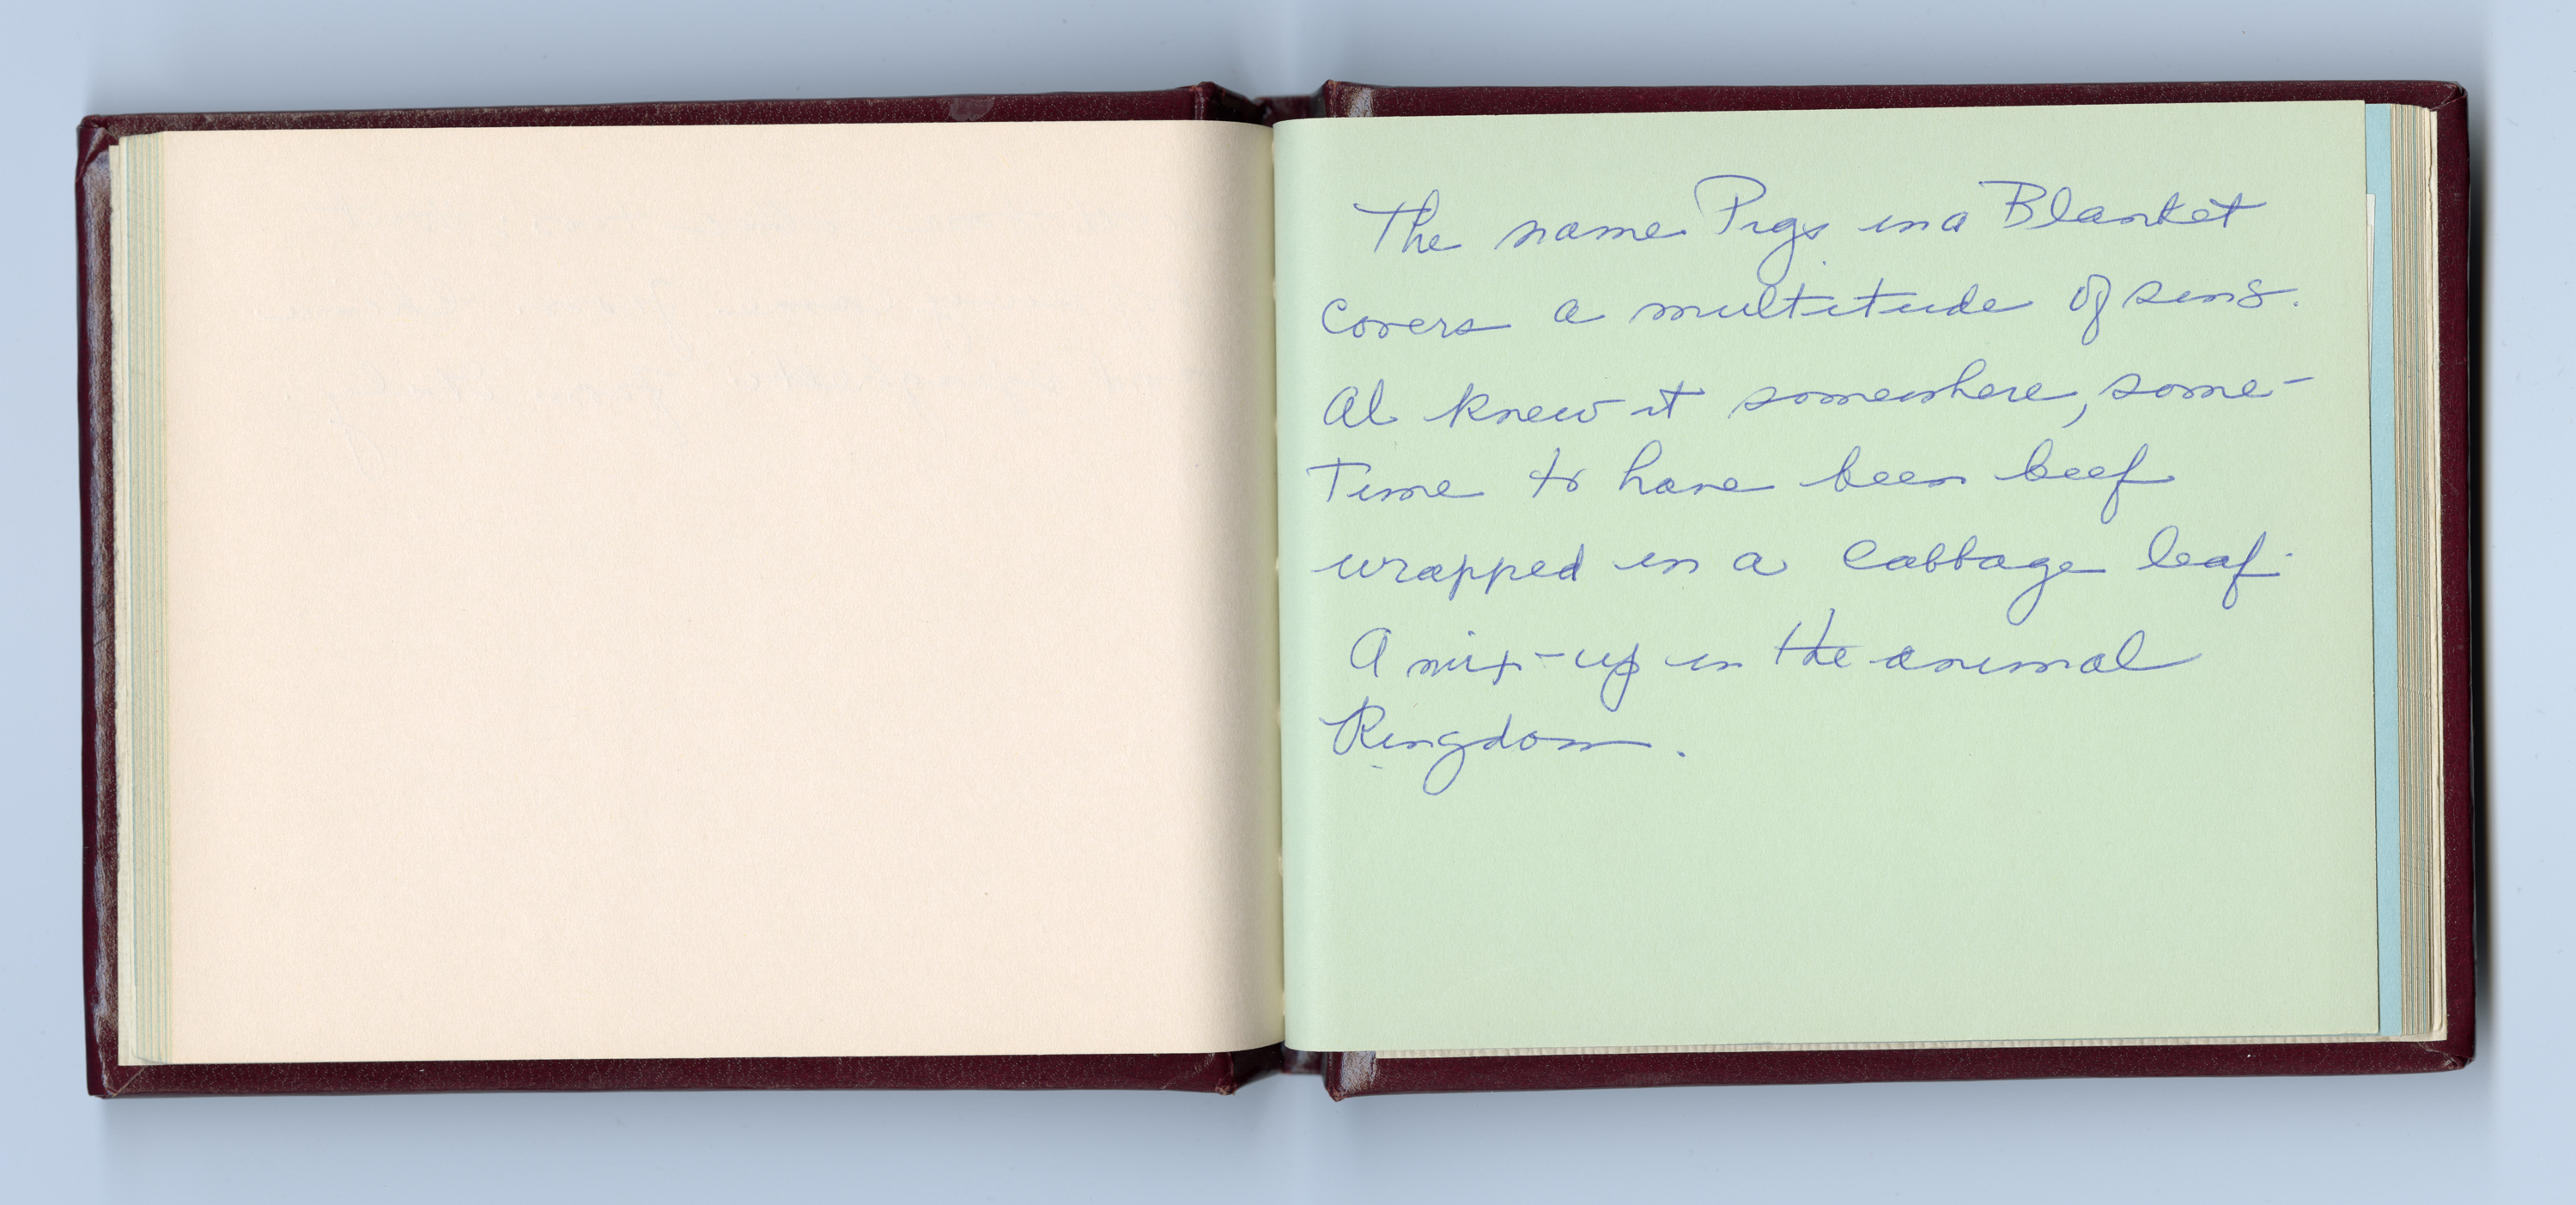 The name Pigs in a Blanket
covers a multitude of sins.
Al knew it somewhere, some-
time to have been beef
wrapped in a cabbage leaf.
A mix-up in the animal
Kingdom.